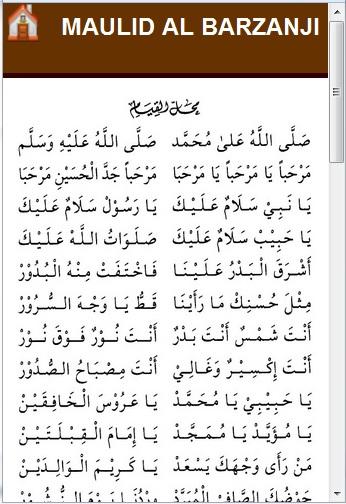 MAULID AL BARZANJI
محل القيام
صَلَّى اللَّهُ عَلىٰ مُحَمَّد صَلَّى اللَّهُ عَلَيْهِ وَسَلَّم
مَرْحَباً يَا مَرْحَباً يَا مَرْحَبَا مَرْحَباً جَدَّ الْحُسَيْنِ مَرْحَبَا
يَا نَبِيْ سَلَامٌ عَلَيْكَ يَا رَسُوْلْ سَلَامٌ عَلَيْكَ
يَا حَبِيْبْ سَلَامٌ عَلَيْكَ صَلَوَاتُ اللَّهْ عَلَيْكَ
أَشْرَقَ الْبَدْرُ عَلَيْنَا فَاخْتَفَتْ مِنْهُ الْبُدُوْرْ
مِثْلَ حُسْنِكْ مَا رَأَيْنَا قَطُّ يَا وَجْهَ السُّرُوْرْ
أَنْتَ شَمْسٌ أَنْتَ بَدْرٌ أَنْتَ نُوْرٌ فَوْقَ نُوْرْ
أَنْتَ إِكْسِيْرٌ وَغَالِيْ أَنْتَ مِصْبَاحُ الصُّدُوْرْ
يَا حَبِيْبِيْ يَا مُحَمَّدْ يَا عَرُوْسَ الْخَافِقَيْنْ
يَا مُؤَيَّدْ يَا مُمَجَّدْ يَا إِمَامَ الْقِبْلَتَيْنْ
مَنْ رَأَى وَجْهَكَ يَسْعَدْ يَا كَرِيْمَ الْوَالِدَيْنْ
حَوْضُكَ الصَّافِى الْمُبَرَّدْ